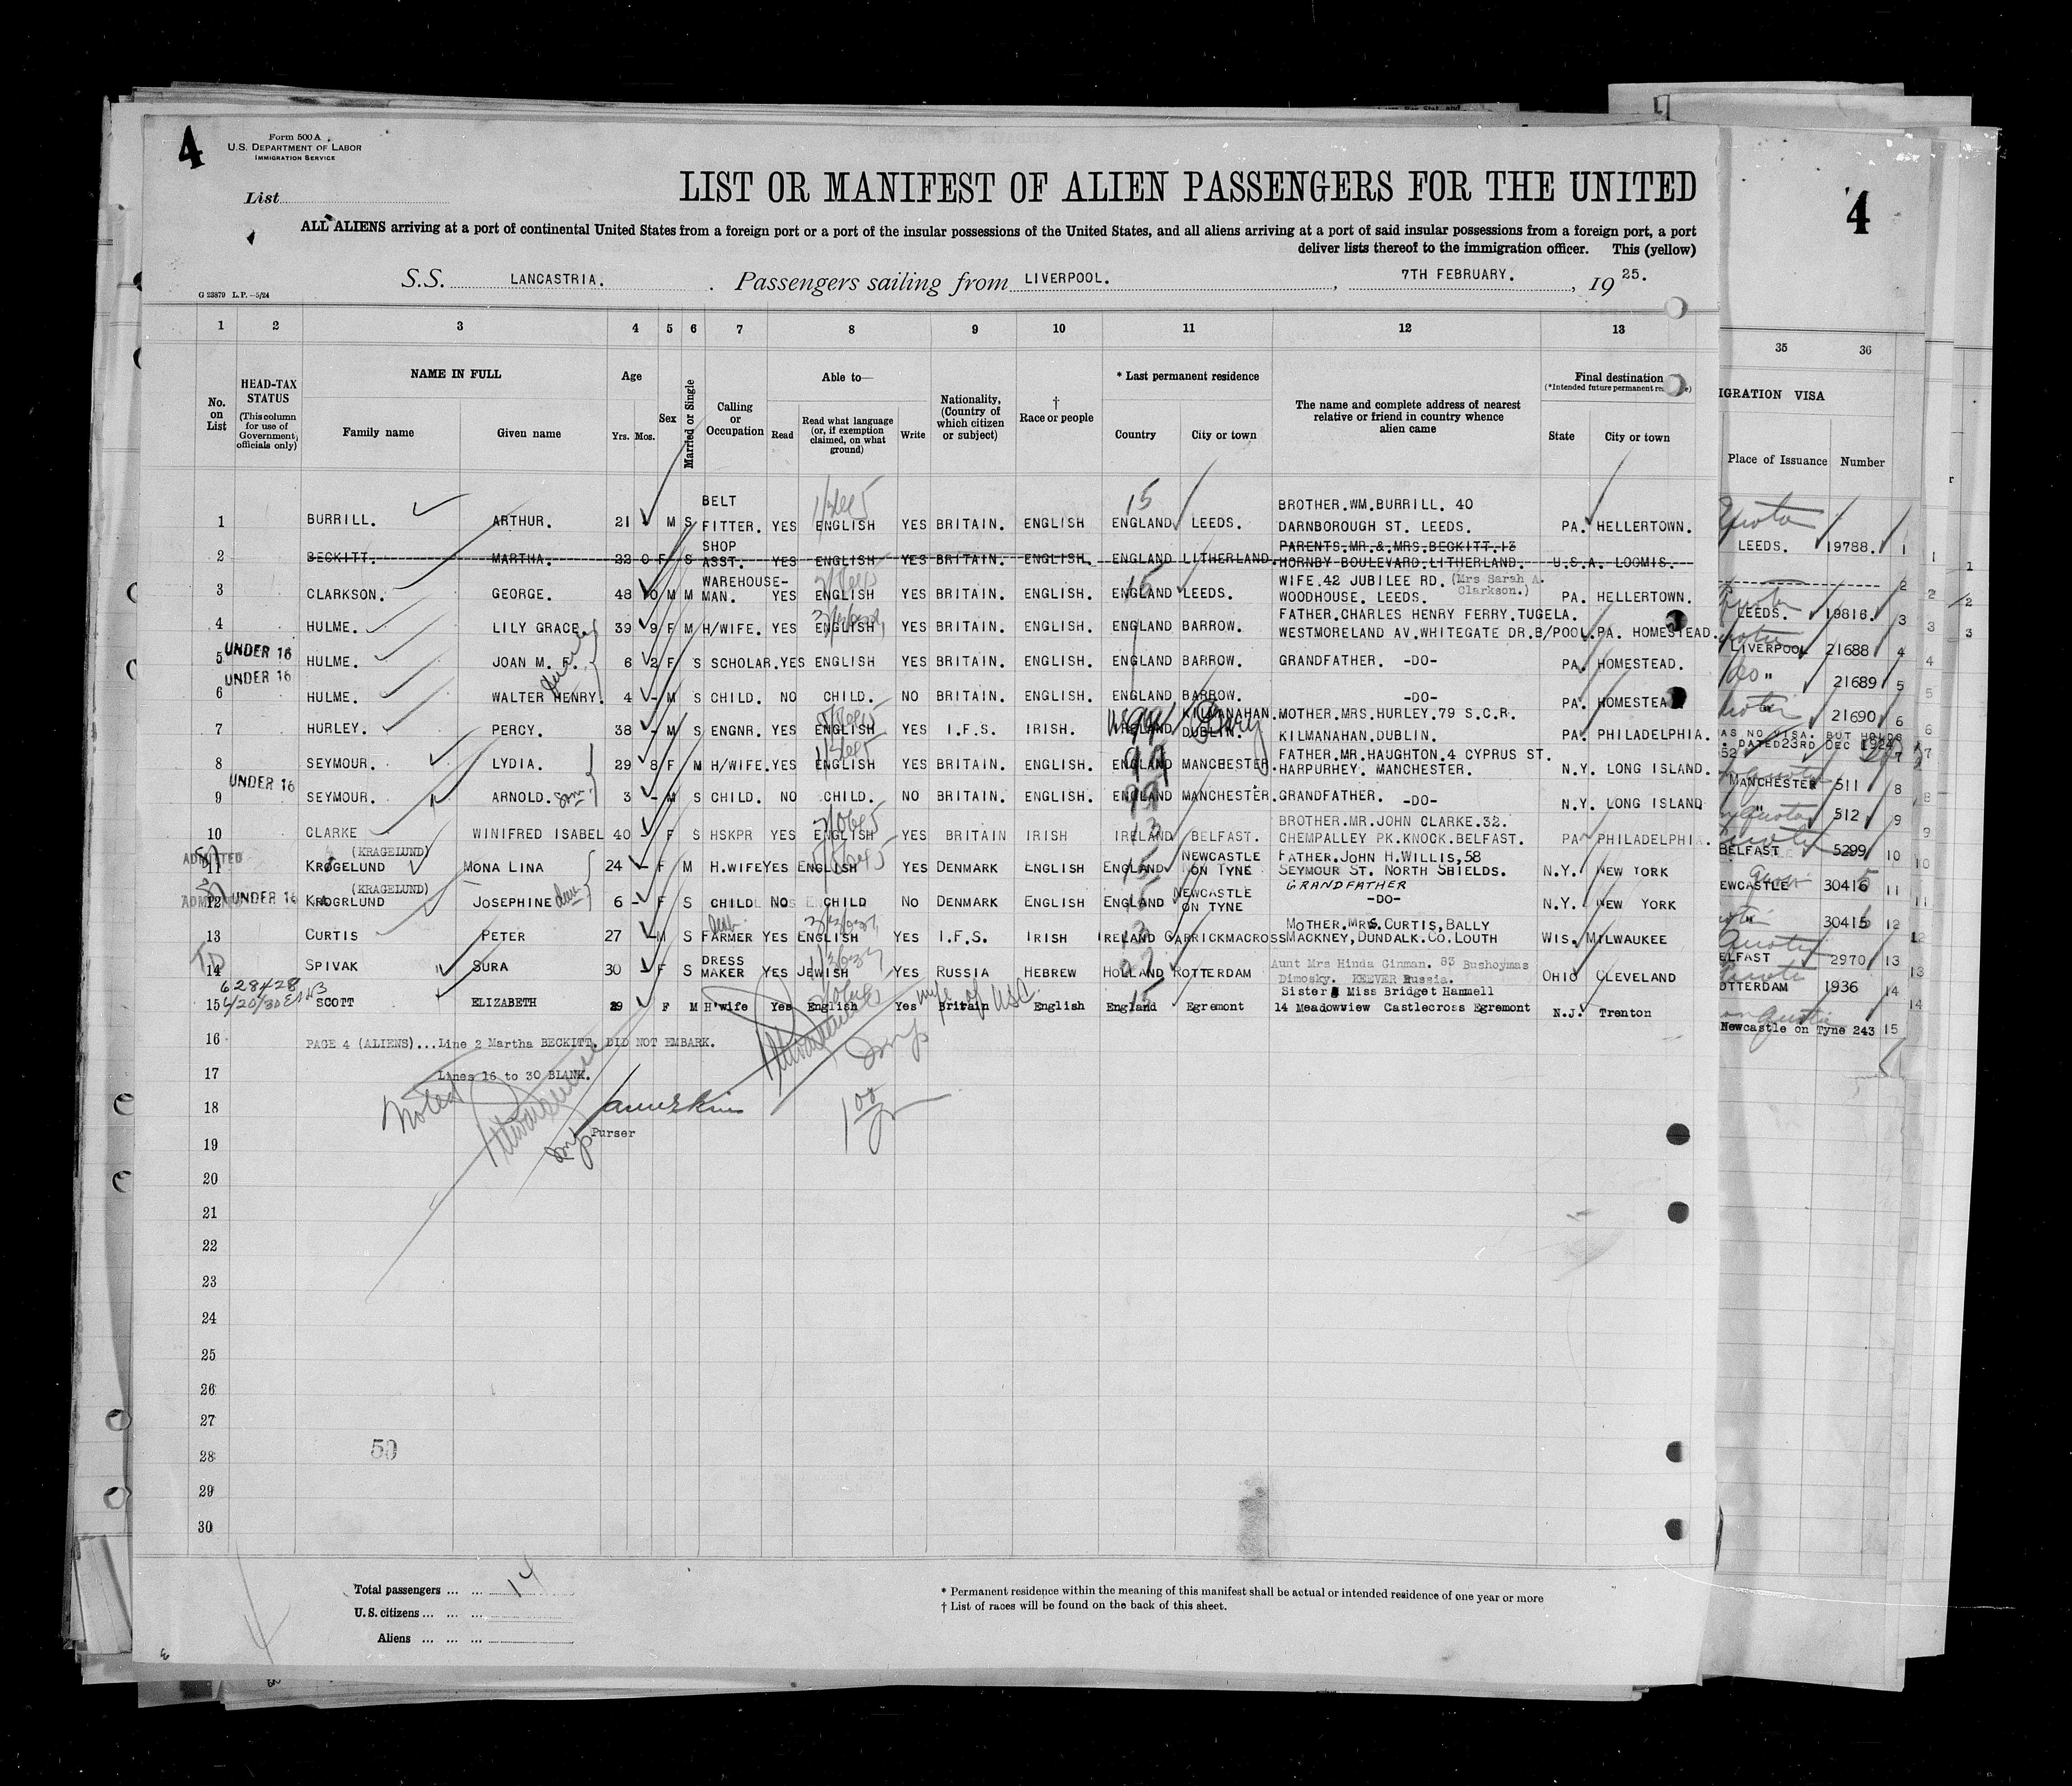 4
Form 500 A
U.S. DEPARTMENT OF LABOR
IMMIGRATION SERVICE
List
LIST OR MANIFEST OF ALIEN PASSENGERS FOR THE UNITED
ALL ALIENS arriving at a port of continental United States from a foreign port or a port of the insular possessions of the United States, and all aliens arriving at a port of said insular possessions from a foreign port, a port
deliver lists thereof to the immigration officer. This (yellow)
S.S. LANCASTRIA. Passengers sailing from LIVERPOOL. , 7TH FEBRUARY. , 19 25.
G 23879 L.P.—5/24
1 2 3 4 5 6 7 8 9 10 11 12 13
No. on List
HEAD-TAX STATUS
(This column for use of Government officials only)
NAME IN FULL
Family name
Given name
Age
Yrs. Mos.
Sex
Married or Single
Calling or Occupation
Able to—
Read
Read what language (or, if exemption claimed, on what ground)
Write
Nationality, (Country of which citizen or subject)
† Race or people
* Last permanent residence
Country
City or town
The name and complete address of nearest relative or friend in country whence alien came
Final destination
(*Intended future permanent
State
City or town
1 BURRILL. ARTHUR. 21 M S BELT FITTER. YES ENGLISH YES BRITAIN. ENGLISH ENGLAND LEEDS. BROTHER.WM.BURRILL. 40 DARNBOROUGH ST. LEEDS. PA. HELLERTOWN.
2 BECKITT. MARTHA. 22 0 F S SHOP ASST. YES ENGLISH YES BRITAIN. ENGLISH. ENGLAND LITHERLAND. PARENTS.MR.&.MRS.BECKITT.13 HORNBY BOULEVARD.LITHERLAND. U.S.A. LOOMIS.
3 CLARKSON. GEORGE. 48 0 M M WAREHOUSE-MAN. YES ENGLISH YES BRITAIN. ENGLISH. ENGLAND LEEDS. WIFE.42 JUBILEE RD. (Mrs Sarah A. Clarkson.) WOODHOUSE. LEEDS. PA. HELLERTOWN.
4 HULME. LILY GRACE 39 9 F M H/WIFE. YES ENGLISH YES BRITAIN. ENGLISH. ENGLAND BARROW. FATHER.CHARLES HENRY FERRY.TUGELA. WESTMORELAND AV.WHITEGATE DR.B/POOL. PA. HOMESTEAD.
UNDER 16
5 HULME. JOAN M. F. 6 2 F S SCHOLAR. YES ENGLISH YES BRITAIN. ENGLISH. ENGLAND BARROW. GRANDFATHER. -DO- PA. HOMESTEAD.
UNDER 16
6 HULME. WALTER HENRY. 4 - M S CHILD. NO CHILD. NO BRITAIN. ENGLISH. ENGLAND BARROW. -DO- PA. HOMESTEA
7 HURLEY. PERCY. 38 - M S ENGNR. YES ENGLISH YES I.F.S. IRISH. IRELAND KILMANAHAN. DUBLIN. MOTHER.MRS.HURLEY.79 S.C.R. KILMANAHAN.DUBLIN. PA. PHILADELPHIA.
8 SEYMOUR. LYDIA. 29 8 F M H/WIFE. YES ENGLISH YES BRITAIN. ENGLISH. ENGLAND MANCHESTER. FATHER.MR.HAUGHTON.4 CYPRUS ST. HARPURHEY. MANCHESTER. N.Y. LONG ISLAND.
UNDER 16
9 SEYMOUR. ARNOLD. son 3 - M S CHILD. NO CHILD. NO BRITAIN. ENGLISH. ENGLAND MANCHESTER. GRANDFATHER. -DO- N.Y. LONG ISLAND
10 CLARKE WINIFRED ISABEL 40 - F S HSKPR YES ENGLISH YES BRITAIN IRISH IRELAND BELFAST. BROTHER.MR.JOHN CLARKE.32. CHEMPALLEY PK.KNOCK.BELFAST. PA PHILADELPHIA.
ADMITTED (KRAGELUND)
11 KROGELUND MONA LINA 24 - F M H.WIFE YES ENGLISH YES DENMARK ENGLISH ENGLAND NEWCASTLE ON TYNE FATHER.JOHN H.WILLIS,58 SEYMOUR ST. NORTH SHIELDS. N.Y. NEW YORK
ADMITTED UNDER 16 (KRAGELUND)
12 KROGRLUND JOSEPHINE 6 - F S CHILD NO CHILD NO DENMARK ENGLISH ENGLAND NEWCASTLE ON TYNE GRANDFATHER -DO- N.Y. NEW YORK
13 CURTIS PETER 27 - M S FARMER YES ENGLISH YES I.F.S. IRISH IRELAND CARRICKMACROSS MOTHER.MRS.CURTIS,BALLY MACKNEY,DUNDALK.CO.LOUTH WIS. MILWAUKEE
14 SPIVAK SURA 30 - F S DRESS MAKER YES JEWISH YES RUSSIA HEBREW HOLLAND ROTTERDAM Aunt Mrs Hinda Ginman. 83 Bushoymas Dimosky. KEEVER Russia. OHIO CLEVELAND
628428
4/20/30
15 SCOTT ELIZABETH 29 F M H'wife Yes English Yes Britain English England Egremont Sister Miss Bridget Hammell 14 Meadowview Castlecross Egremont N.J. Trenton
wife of USC
16 PAGE 4 (ALIENS)...Line 2 Martha BECKITT. DID NOT EMBARK.
17 Lines 16 to 30 BLANK.
Noted
18
Purser
19
20
21
22
23
24
25
26
27
28 50
29
30
Total passengers ... ... 14
U.S. citizens ... ... ...
Aliens ... ... ...
* Permanent residence within the meaning of this manifest shall be actual or intended residence of one year or more
† List of races will be found on the back of this sheet.
4
35 36
IGRATION VISA
Place of Issuance Number
LEEDS. 19788. 1
2
LEEDS. 19816. 3
LIVERPOOL 21688 4
do " 21689 5
" 21690 6
AS NO VISA. BUT HOLDS
. DATED 23RD DEC 1924 7
MANCHESTER 511 8
" 512 9
BELFAST 5299 10
EWCASTLE 30416 11
" 30415 12
ELFAST 2970 13
OTTERDAM 1936 14
Newcastle on Tyne 243 15